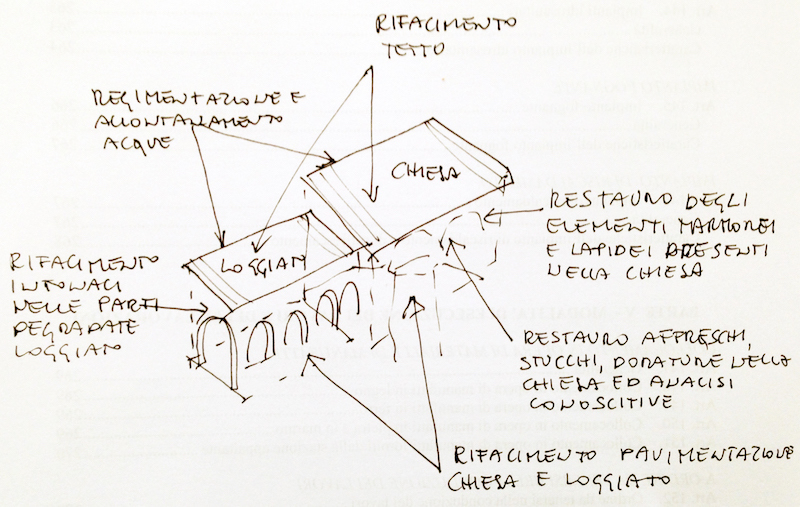 RIFACIMENTO
TETTO
REGIMENTAZIONE E
ALLONTANAMENTO
ACQUE
CHIESA
LOGGIATO
RESTAURO DEGLI
ELEMENTI MARMOREI
E LAPIDEI PRESENTI
NELLA CHIESA
RIFACIMENTO
INTONACI
NELLE PARTI
DEGRADATE
LOGGIATO
RESTAURO AFFRESCHI,
STUCCHI, DORATURE NELLA
CHIESA ED ANALISI
CONOSCITIVE
RIFACIMENTO PAVIMENTAZIONE
CHIESA E LOGGIATO